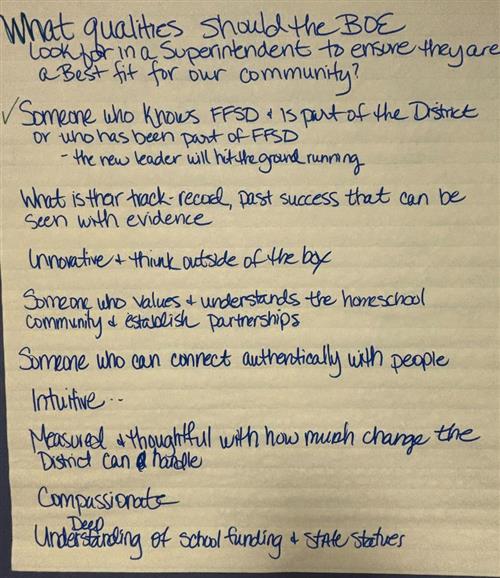 What qualities should the BOE
look for in a Superintendent to ensure they are
a Best fit for our community?
✓ Someone who knows FFSD + is part of the District
or who has been part of FFSD
- the new leader will hit the ground running
What is thar track-recoel, past success that can be
seen with evidence
Innovative + think outside of the box
Someone who values + understands the homeschool
community & establish partnerships
Someone who can connect authentically with people
Intuitive..
Measured & thoughtful with how much change the
District can handle
Compassionate
Deep
Understanding of school funding & state statues